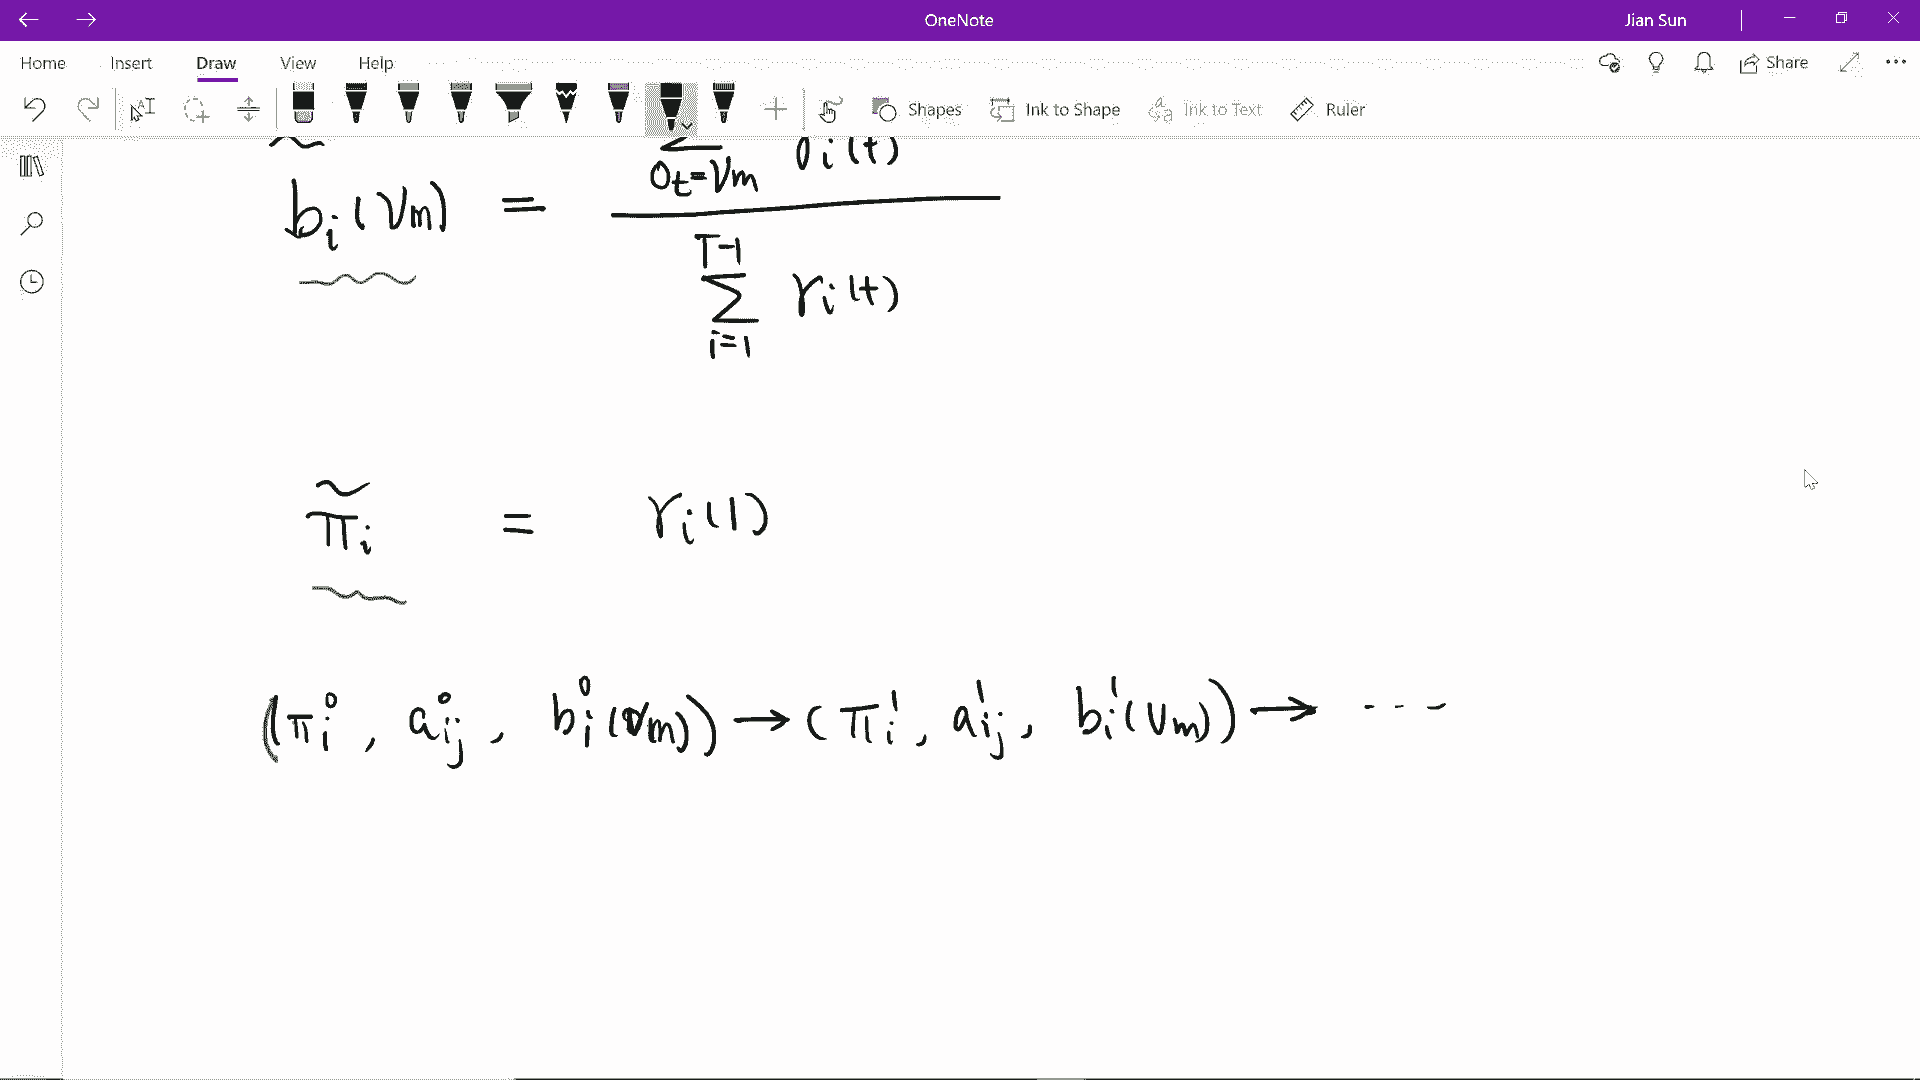 OneNote
Jian Sun
Home Insert Draw View Help
Share
Shapes Ink to Shape Ink to Text Ruler
b̃ᵢ(Vm) = Σ_{Ot=Vm} γᵢ(t) / Σ_{i=1}^{T-1} γᵢ(t)
π̃ᵢ = γᵢ(1)
(πᵢ⁰, aᵢⱼ⁰, bᵢ⁰(Vm)) → (πᵢ¹, aᵢⱼ¹, bᵢ¹(Vm)) → ---